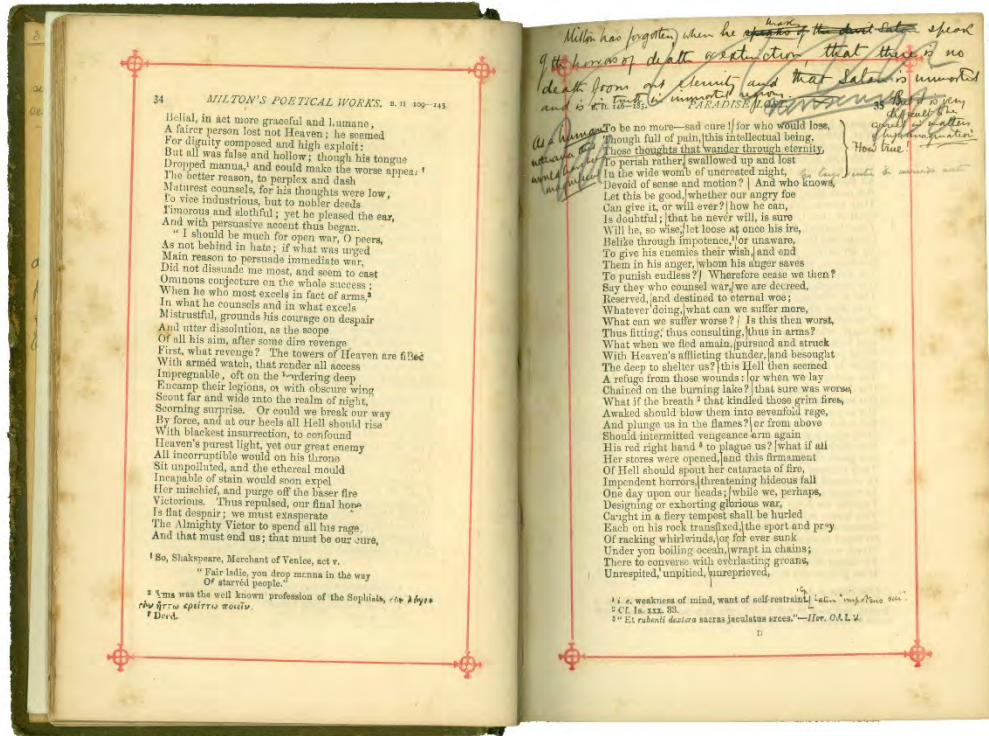 34 MILTON'S POETICAL WORKS. B. II 109–145
Belial, in act more graceful and humane,
A fairer person lost not Heaven; he seemed
For dignity composed and high exploit:
But all was false and hollow; though his tongue
Dropped manna,¹ and could make the worse appear ²
The better reason, to perplex and dash
Maturest counsels, for his thoughts were low,
To vice industrious, but to nobler deeds
Timorous and slothful; yet he pleased the ear,
And with persuasive accent thus began.
"I should be much for open war, O peers,
As not behind in hate; if what was urged
Main reason to persuade immediate war,
Did not dissuade me most, and seem to cast
Ominous conjecture on the whole success;
When he who most excels in fact of arms,³
In what he counsels and in what excels
Mistrustful, grounds his courage on despair
And utter dissolution, as the scope
Of all his aim, after some dire revenge
First, what revenge? The towers of Heaven are filled
With armèd watch, that render all access
Impregnable, oft on the bordering deep
Encamp their legions, or with obscure wing
Scout far and wide into the realm of night,
Scorning surprise. Or could we break our way
By force, and at our heels all Hell should rise
With blackest insurrection, to confound
Heaven's purest light, yet our great enemy
All incorruptible would on his throne
Sit unpolluted, and the ethereal mould
Incapable of stain would soon expel
Her mischief, and purge off the baser fire
Victorious. Thus repulsed, our final hope
Is flat despair; we must exasperate
The Almighty Victor to spend all his rage.
And that must end us; that must be our cure,
¹ So, Shakspeare, Merchant of Venice, act v.
"Fair ladie, you drop manna in the way
Of starvéd people."
² This was the well known profession of the Sophists, τὸν λόγον
τὸν ἥττω κρείττω ποιεῖν.
³ Deed.
Milton has forgotten, when he makes speaks of the devil Satan speak
of the horrors of death & extinction, that there is no
death from out eternity and that Satan is immortal
and is in immortal region.
B. II. 146–183. PARADISE LOST. 35
But it is very
difficult to be
in matters
of imagination
How true!
As a human
would
nonsense
To be no more—sad cure! for who would lose,
Though full of pain, this intellectual being,
Those thoughts that wander through eternity,
To perish rather, swallowed up and lost
In the wide womb of uncreated night,
Devoid of sense and motion? And who knows,
Let this be good, whether our angry foe
Can give it, or will ever? how he can,
Is doubtful; that he never will, is sure
Will he, so wise, let loose at once his ire,
Belike through impotence,¹ or unaware,
To give his enemies their wish, and end
Them in his anger, whom his anger saves
To punish endless? Wherefore cease we then?
Say they who counsel war, we are decreed,
Reserved, and destined to eternal woe;
Whatever doing, what can we suffer more,
What can we suffer worse? Is this then worst,
Thus fitting, thus consulting, thus in arms?
What when we fled amain, pursued and struck
With Heaven's afflicting thunder, and besought
The deep to shelter us? this Hell then seemed
A refuge from those wounds: or when we lay
Chained on the burning lake? that sure was worse,
What if the breath ² that kindled those grim fires,
Awaked should blow them into sevenfold rage,
And plunge us in the flames? or from above
Should intermitted vengeance arm again
His red right hand ³ to plague us? what if all
Her stores were opened, and this firmament
Of Hell should spout her cataracts of fire,
Impendent horrors, threatening hideous fall
One day upon our heads; while we, perhaps,
Designing or exhorting glorious war,
Caught in a fiery tempest shall be hurled
Each on his rock transfixed, the sport and prey
Of racking whirlwinds, or for ever sunk
Under yon boiling ocean, wrapt in chains;
There to converse with everlasting groans,
Unrespited, unpitied, unreprieved,
¹ i. e. weakness of mind, want of self-restraint, Latin "impotens sui".
² Cf. Is. xxx. 33.
³ "Et rubenti dextera sacras jaculatus arces."—Hor. Od. I. ii.
D